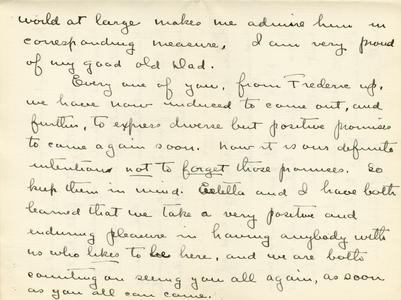 world at large makes me admire him in
corresponding measure. I am very proud
of my good old Dad.
Every one of you, from Frederic up,
we have now induced to come out, and
further, to express diverse but positive promises
to come again soon. Now it is our definite
intentions not to forget those promises. So
keep them in mind. Estella and I have both
learned that we take a very positive and
enduring pleasure in having anybody with
us who likes to be here, and we are both
counting on seeing you all again, as soon
as you all can come.